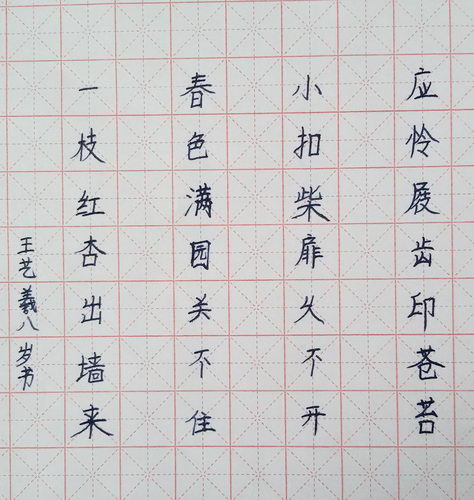 应怜展齿印苍苔
小扣柴扉久不开
春色满园关不住
一枝红杏出墙来
王艺羲八岁书